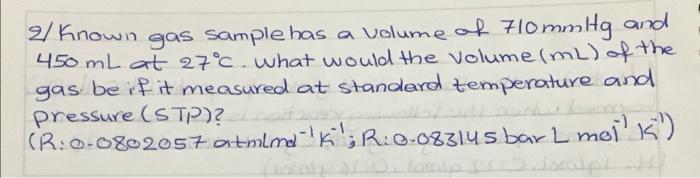 2/ Known gas sample has a volume of 710mmHg and
450 mL at 27°C. what would the volume (mL) of the
gas be if it measured at standard temperature and
pressure (STP)?
(R: 0.0802057 atmlmol⁻¹ K⁻¹; R: 0.083145 bar L mol⁻¹ K⁻¹)